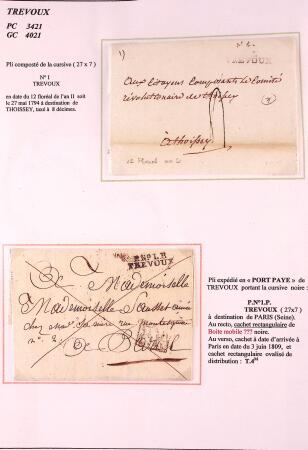 TREVOUX
PC 3421
GC 4021
Pli composté de la cursive ( 27 x 7 )
N° 1
TREVOUX
en date du 12 floréal de l'an II soit
le 27 mai 1794 à destination de
THOISSEY, taxé à 8 décimes.
1)
TREVOUX
aux Citoyens Composants le Comité
révolutionaire de
à thoissey
12 floréal an 2
P.N°1.P.
TREVOUX
Mademoiselle
Mademoiselle
chez
n°
Pli expédié en « PORT PAYE » de
TREVOUX portant la cursive noire :
P.N°1.P.
TREVOUX (27x7)
à destination de PARIS (Seine).
Au recto, cachet rectangulaire de
Boite mobile ??? noire.
Au verso, cachet à date d'arrivée à
Paris en date du 3 juin 1809, et
cachet rectangulaire ovalisé de
distribution :